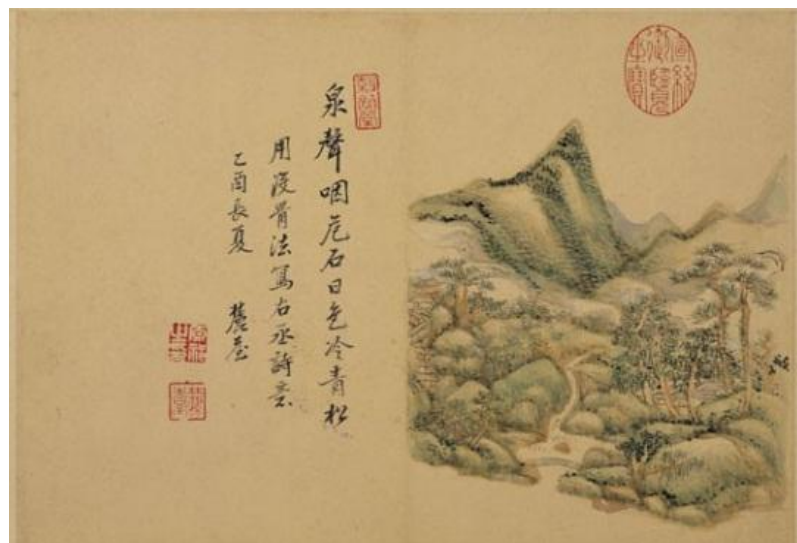 宣統御覽之寶
泉聲咽危石日色冷青松
用没骨法寫右丞詩意
乙酉長夏 麓臺